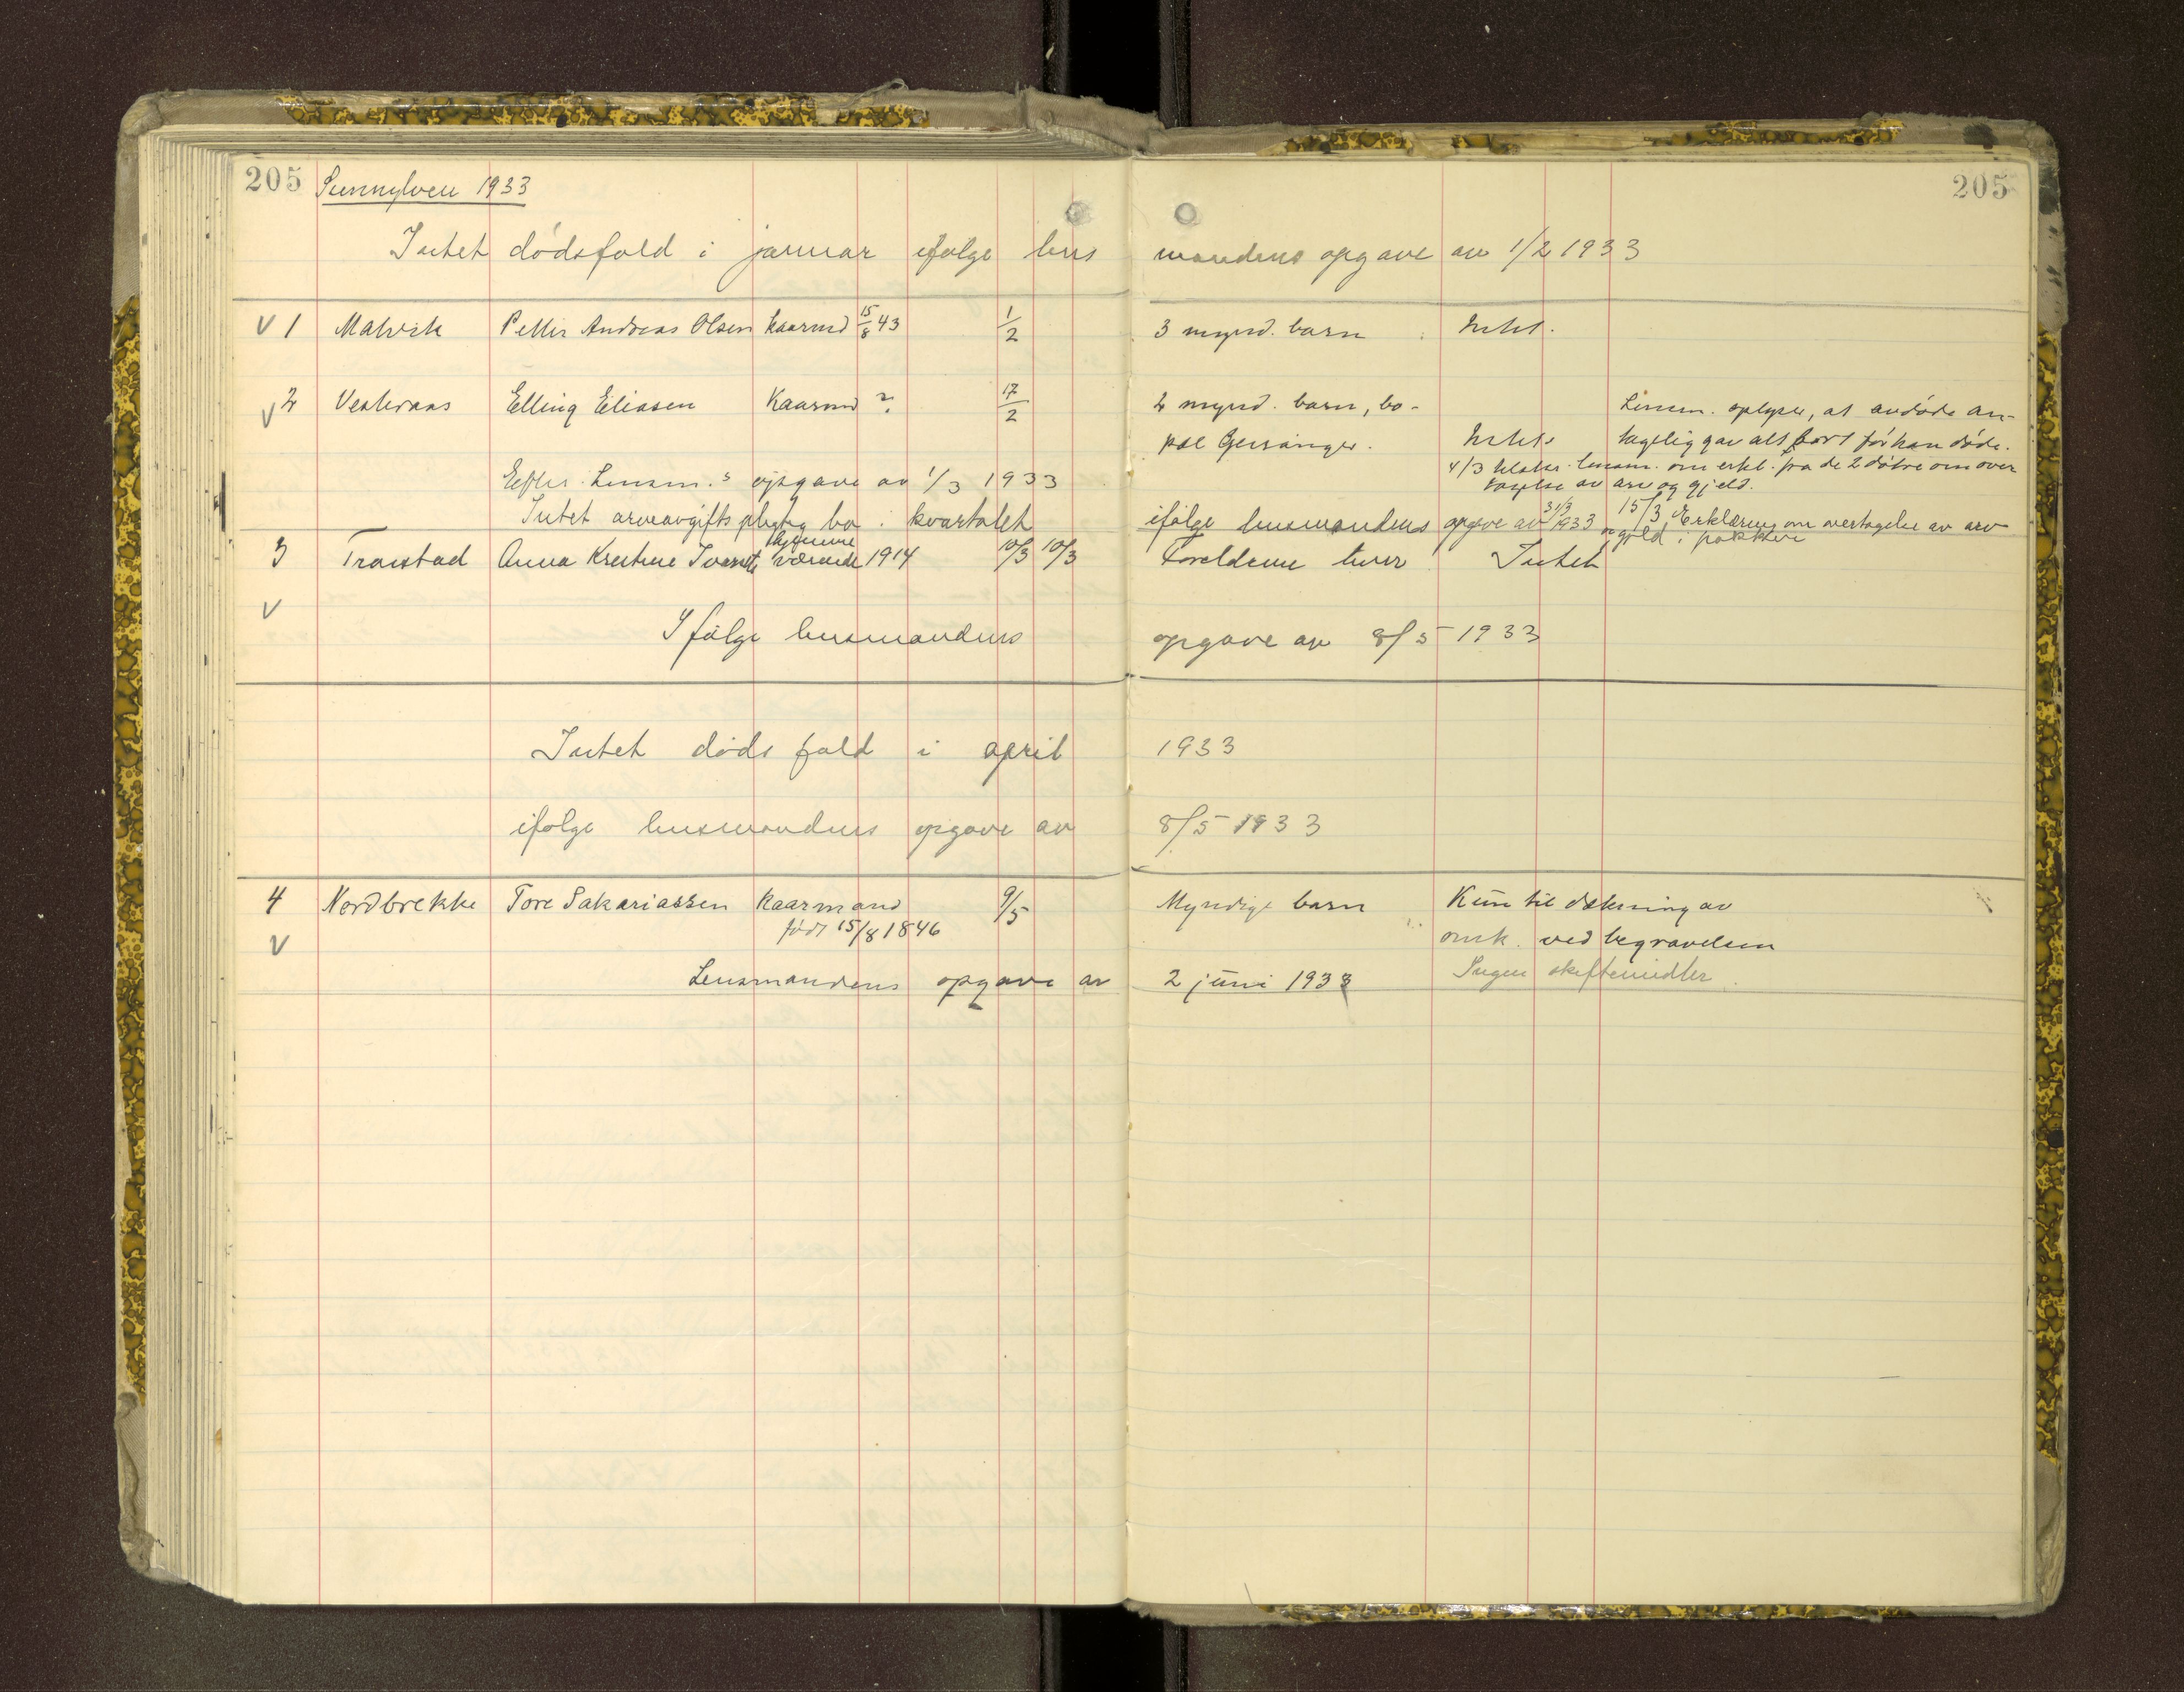 205 Sunnylven 1933 205
Intet dødsfald i januar ifølge lens mandens opgave av 1/2 1933
V 1 Malvik Petter Andreas Olsen Kaarmd 15/8 43 1/2 3 mynd. barn Intet.
V 2 Vesteraas Elling Eliasen Kaarmd ? 17/2 2 mynd. barn, bo- Lensm. oplyser, at avdøde an-
pæl Geiranger. Intet. tagelig gav alt bort før han døde.
4/3 tilskr. lensm. om erkl. fra de 2 døtre om over
Efter Lensm.s opgave av 1/3 1933 tagelse av arv og gjeld.
Intet arveavgiftspligtig bo i kvartalet ifølge lensmandens opgave av 31/3 1933 15/3 Erklæring om overtagelse av arv
og gjeld i pakken
3 Traustad Anna Kristine Iversdtr hjemmeværende 1914 10/3 10/3 Foreldrene lever Intet
V Ifølge lensmandens opgave av 8/5 1933
Intet dødsfald i april 1933
ifølge lensmandens opgave av 8/5 1933
4 Nordbrekke Tore Sakariassen Kaarmand 9/5 Myndige barn Kun til dækning av
V født 15/8 1846 omk. ved begravelsen
Lensmandens opgave av 2 juni 1933 Ingen skiftemidler.